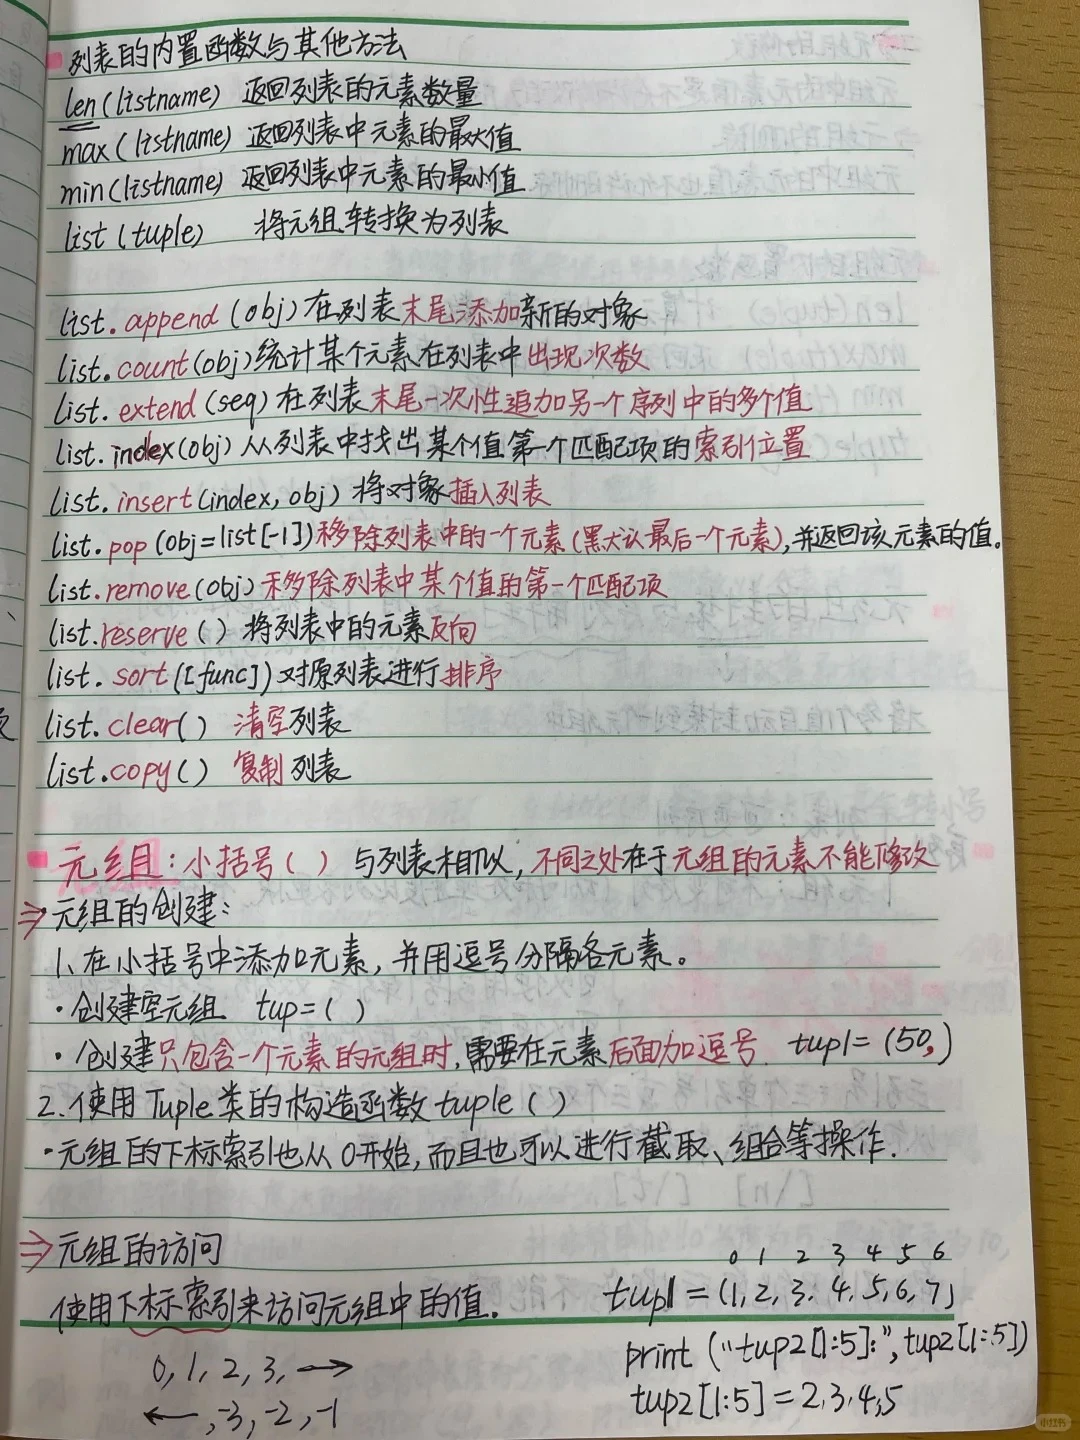 列表的内置函数与其他方法
len(listname) 返回列表的元素数量
max(listname) 返回列表中元素的最大值
min(listname) 返回列表中元素的最小值
list(tuple) 将元组转换为列表
list.append(obj)在列表末尾添加新的对象
list.count(obj)统计某个元素在列表中出现次数
list.extend(seq)在列表末尾一次性追加另一个序列中的多个值
list.index(obj)从列表中找出某个值第一个匹配项的索引位置
list.insert(index,obj)将对象插入列表
list.pop(obj=list[-1])移除列表中的一个元素(黑大认最后一个元素),并返回该元素的值。
list.remove(obj)移除列表中某个值的第一个匹配项
list.reserve()将列表中的元素反向
list.sort([func])对原列表进行排序
list.clear() 清空列表
list.copy() 复制列表
元组:小括号() 与列表相似,不同之处在于元组的元素不能修改
⇒元组的创建:
1、在小括号中添加元素,并用逗号分隔各元素。
·创建空元组 tup=()
·创建只包含一个元素的元组时,需要在元素后面加逗号. tup1=(50,)
2.使用Tuple类的构造函数tuple()
·元组的下标索引也从0开始,而且也可以进行截取、组合等操作.
⇒元组的访问
使用下标索引来访问元组中的值。
0,1,2,3,→
←,-3,-2,-1
0 1 2 3 4 5 6
tup1=(1,2,3,4,5,6,7)
print("tup2[1:5]:",tup2[1:5])
tup2[1:5]=2,3,4,5
小红书